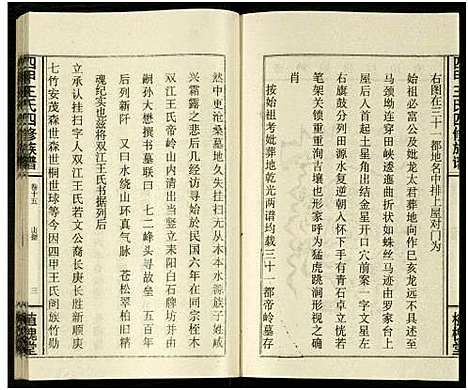 右图在三十一都地名中排上屋对门为
始祖必富公及妣龙太君葬地向作巳亥龙远不具述至
马颈坳连穿田峡逶曲折来如蛛丝马迹由左抽出
屋星后入首一突开口穴前案一字明堂宽大
旗鼓分列田源水复逆朝人怀左右青石卓立恍若
笔架关锁重重洵吉壤也有喝为猛虎跳涧形视之
肖
按始祖考妣葬地乾光两谱均载三十一都帝岭墓存
中更沧桑墓地久失挂扫无木本水源族子姓咸
兴霜露之悲后几经访寻始於民国六年在同宗桎木
双江王氏帝岭山场内耒阳白石牌坊并由
嗣孙大懋撰书墓联曰 七二峰头寻故垒 五百年
后列新阡 又曰无改山环真气脉 苍松翠柏旧佳
魂纪实也兹将双江王氏书据列后
立承认挂扫字人双江王氏若文公裔长庚长胜新顺庚
七竹安茂森世森世桐世球等今因四甲王氏阖族竹勋
四甲王氏四修族谱
卷十五
山图
三
植槐堂